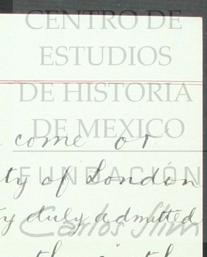 CENTRO DE
ESTUDIOS
DE HISTORIA
DE MEXICO
come or
ty of London
FUNDACIÓN
ty duly admitted
Carlos Slim